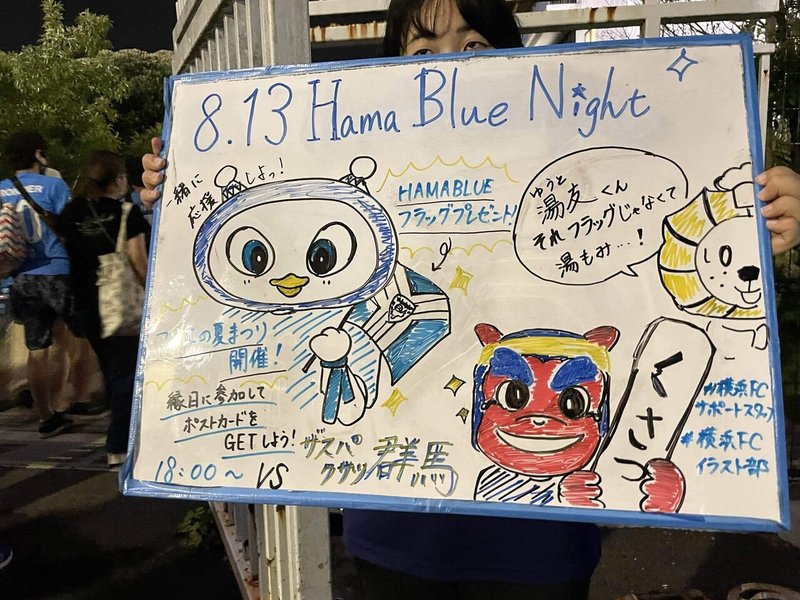 8.13 Hama Blue Night
一緒に
応援しよっ!
HAMABLUE
フラッグプレゼント!
ゆうと
湯友くん
それフラッグじゃなくて
湯もみ…!
の夏まつり
開催!
縁日に参加して
ポストカードを
GETしよう!
18:00〜 VS
ザスパ
クサツ 群馬
くさつ
#横浜FC
サポートスタッフ
#横浜FC
イラスト部